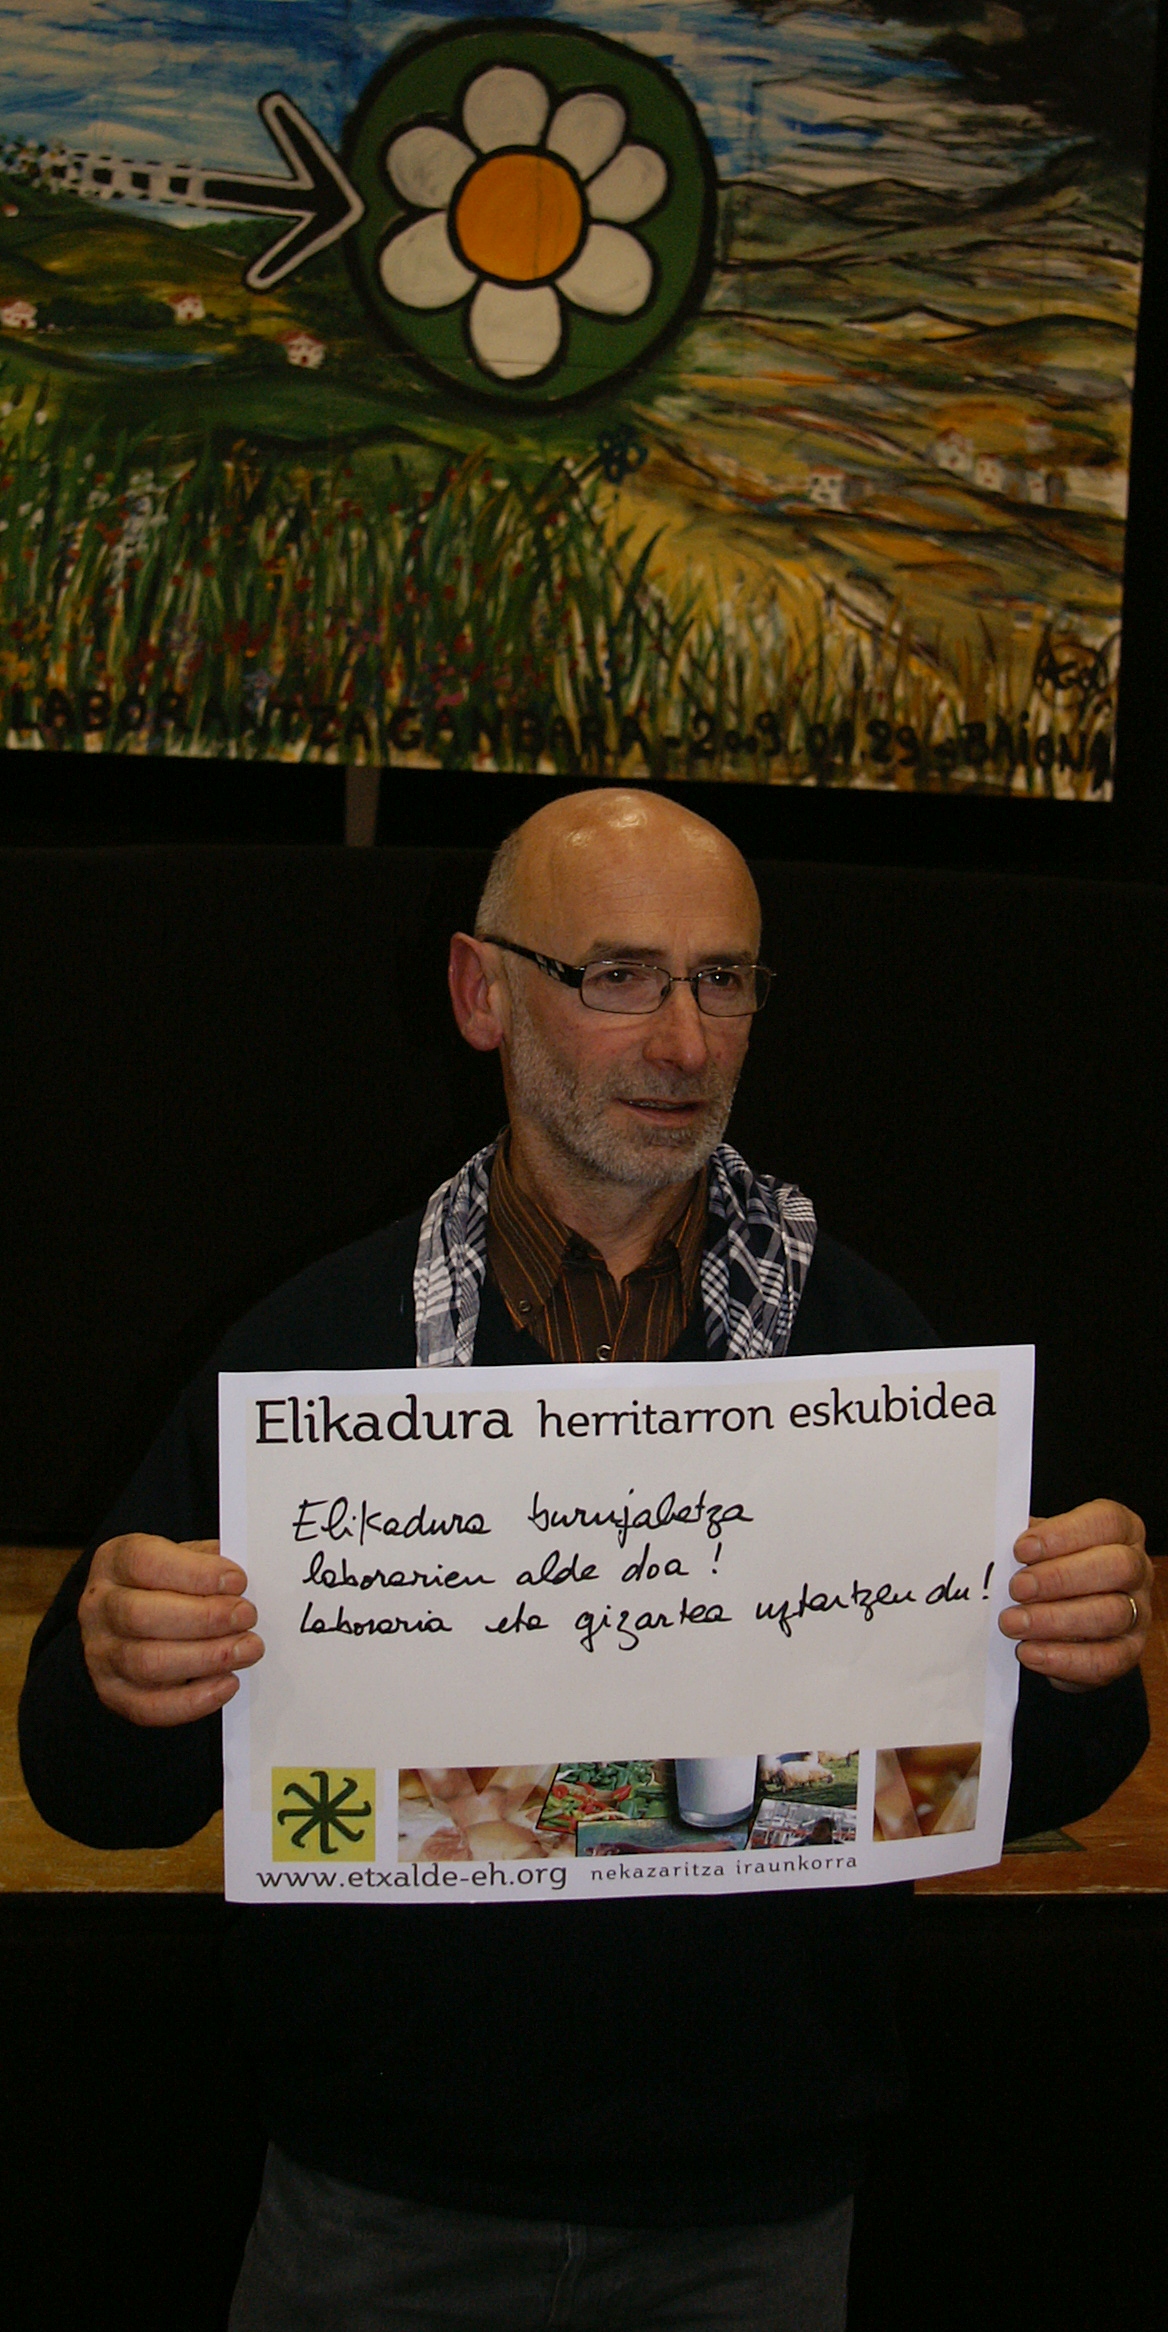 LABORANTZA GANBARA - 2009.01.29 - BAIONA
Elikadura herritarron eskubidea
Elikadura burujabetza
laborarien alde doa !
Laboraria eta gizartea uztartzen du!
www.etxalde-eh.org nekazaritza iraunkorra